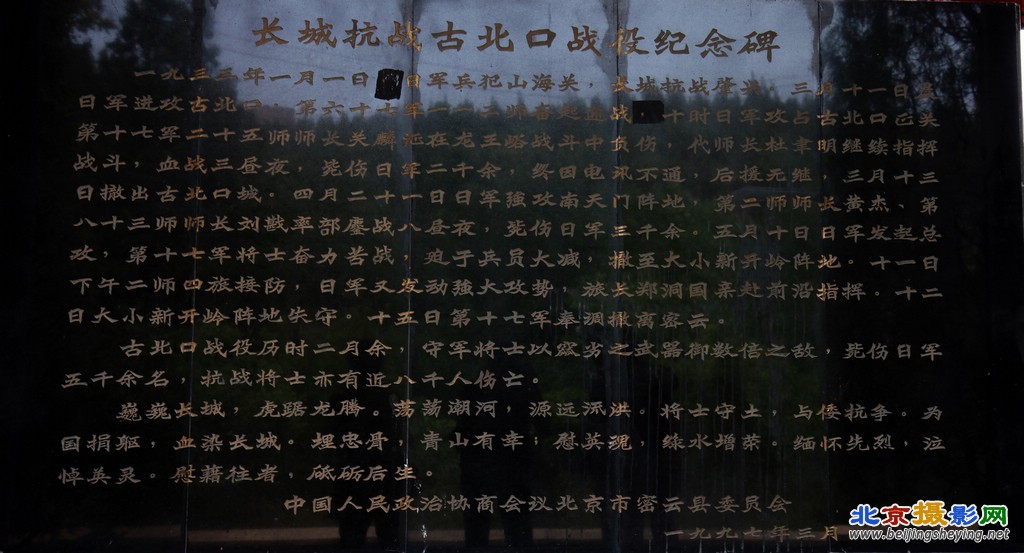 长城抗战古北口战役纪念碑
一九三三年一月一日 日军兵犯山海关，长城抗战肇始，三月十一日
日军进攻古北口，第六十七军一一二师奋起迎战， 十时日军攻占古北口正关
第十七军二十五师师长关麟征在龙王峪战斗中负伤，代师长杜聿明继续指挥
战斗，血战三昼夜，毙伤日军二千余，终因电讯不通，后援无继，三月十三
日撤出古北口城。四月二十一日日军強攻南天门阵地，第二师师长黄杰、第
八十三师师长刘戡率部鏖战八昼夜，毙伤日军三千余。五月十日日军发起总
攻，第十七军将士奋力苦战，迫于兵员大减，撤至大小新开岭阵地。十一日
下午二师四旅接防，日军又发动強大攻势，旅长郑洞国亲赴前沿指挥。十二
日大小新开岭阵地失守。十五日第十七军奉调撤离密云。
古北口战役历时二月余，守军将士以窳劣之武器御数倍之敌，毙伤日军
五千余名，抗战将士亦有近八千人伤亡。
巍巍长城，虎踞龙腾。荡荡潮河，源远流洪。将士守土，与倭抗争。为
国捐躯，血染长城。埋忠骨，青山有幸；慰英魂，绿水增荣。缅怀先烈，泣
悼英灵。慰藉往者，砥砺后生。
中国人民政治协商会议北京市密云县委员会
一九九七年三月
北京摄影网
www.beijingsheying.net